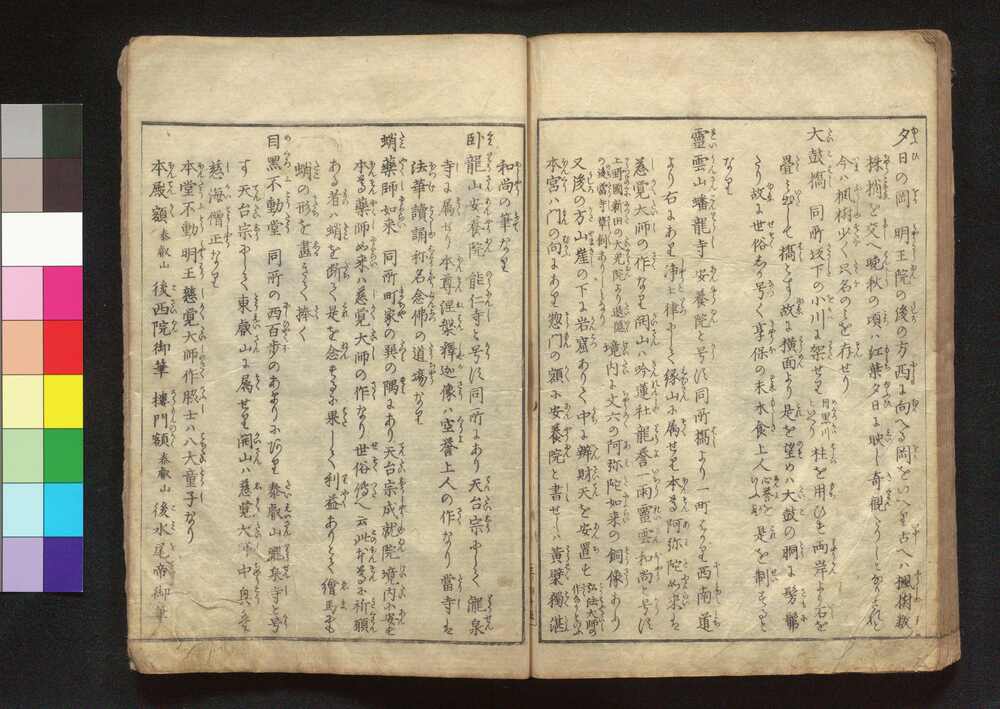 夕日の岡　明王院の後の方西に向へる岡をいへり古へハ楓樹数
株梢を交へ晩秋の頃ハ紅葉夕日に映し奇観たりしとかされと
今ハ楓樹少く只名のミを存せり
大鼓橋　同所坂下の小川に架せり　目黒川といふ　柱を用ひす両岸より石を
畳ミ出して橋とす故に横面より是を望めハ大鼓の胴に髣髴
たり故に世俗しか号く享保の末木食上人　是を制するところと
なり
靈雲山蟠龍寺　安養院と号す同所橋より一町はかり西南道
より右にあり浄土律にして縁山に属せり本尊阿弥陀如来ハ
慈覚大師の作なり開山ハ吟蓮社龍誉一雨靈雲和尚と号す
上野國新田の大光院より退隠の後当寺を草創ありしとなり　境内に丈六の阿弥陀如来の銅像あり
又後の方山崖の下に岩窟ありて中に辨財天を安置す　弘法大師の作なりといふ
本宮ハ門の向にあり惣門の額に安養院と書せしハ黄檗獨湛
和尚の筆なり
臥龍山安養院　能仁寺と号す同所にあり天台宗にして瀧泉
寺に属せり本尊涅槃釋迦像ハ空誉上人の作なり當寺は
法華讀誦和名念佛の道場なり
蛸藥師如来　同所町家の巽の隅にあり天台宗成就院境内に安す
本尊藥師如来ハ慈覚大師の作なり世俗傳へ云此本尊に祈願
ある者ハ蛸を断て是を念するに果して利益ありとそ繪馬にも
蛸の形を畫きて捧く
目黒不動堂　同所の西百歩のあまりにあり泰叡山瀧泉寺と号
す天台宗にして東叡山に属せり開山ハ慈覚大師中興ハ
慈海僧正なり
本堂不動明王慈覚大師作脇士ハ八大童子なり
本殿額　泰叡山　後西院御筆　樓門額　泰叡山　後水尾帝御筆